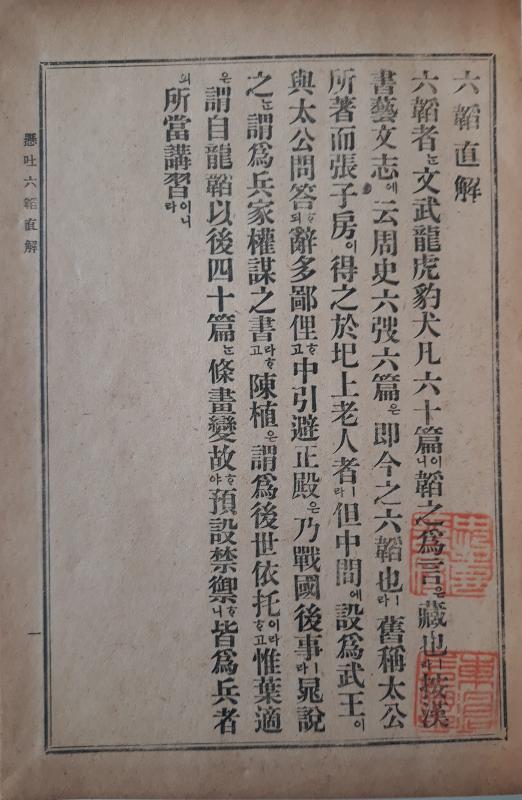 六韜直解
六韜者ᄂᆞᆫ文武龍虎豹犬凡六十篇이니韜之爲言은藏也ㅣ라按漢
書藝文志에云周史六弢六篇은即今之六韜也ㅣ라舊稱太公
所著而張子房이得之於圯上老人者ㅣ라但中間에設爲武王이
與太公問答ᄒᆞ되辭多鄙俚ᄒᆞ고中引避正殿은乃戰國後事ㅣ라晁說
之ᄂᆞᆫ謂爲兵家權謀之書라ᄒᆞ고陳植은謂爲後世依托이라ᄒᆞ고惟葉適
은謂自龍韜以後四十篇ᄂᆞᆫ條畫變故ᄒᆞ야預設禁禦ᄒᆞ니皆爲兵者
의所當講習이니라
懸吐六韜直解
一